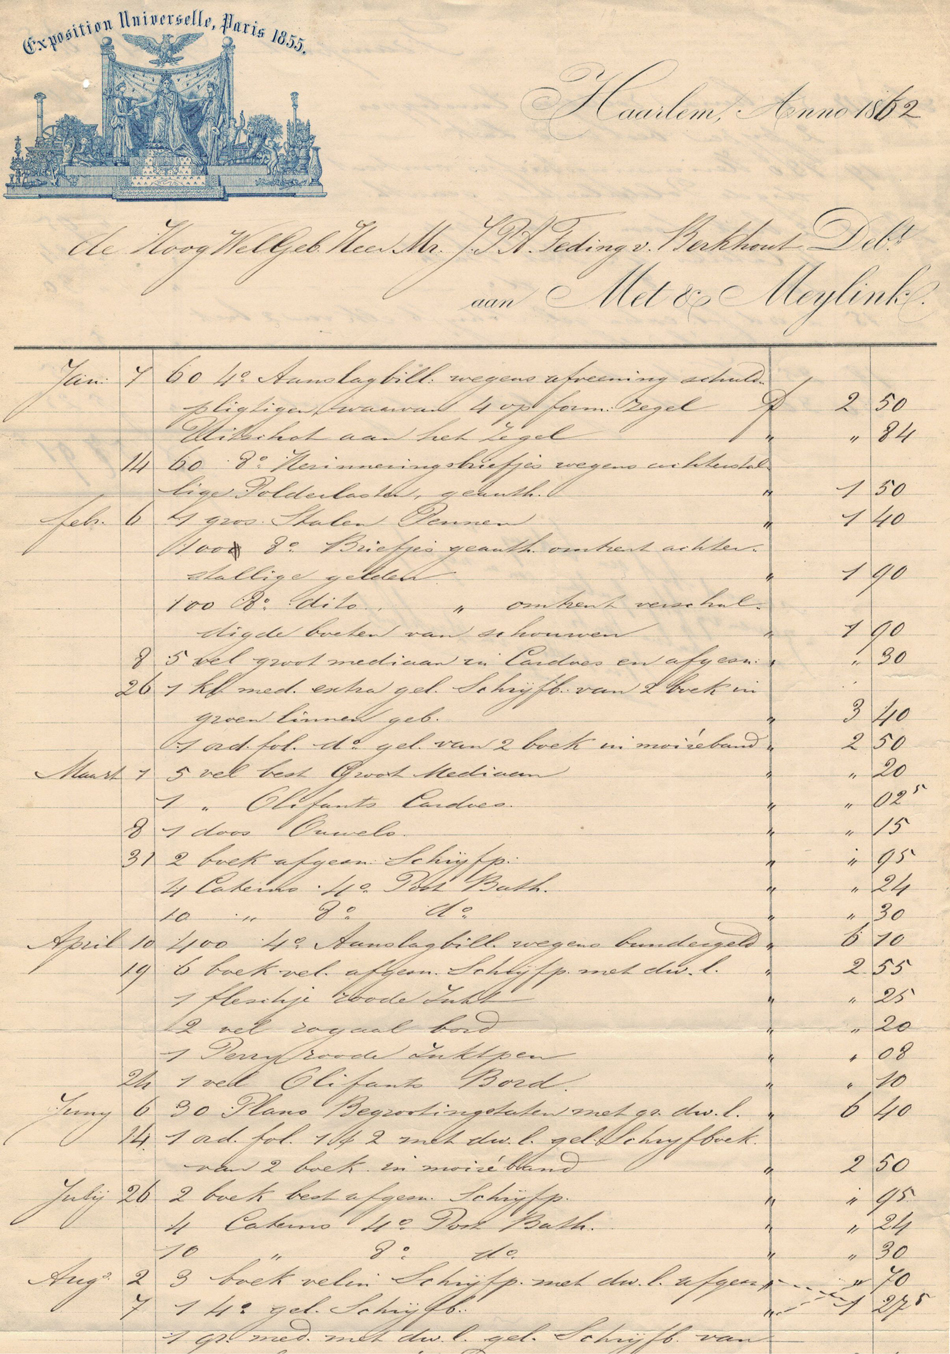 Exposition Universelle, Paris 1855.
Haarlem, Anno 1862
de HoogWelGeb. Heer Mr. J.P.A. Teding v. Berkhout Debt.
aan Met & Meylink.
Jan. 7 60 4o Aanslagbill. wegens afveening schuld-
pligtigen, waarvan 4 op form. Zegel f 2 50
Uitschot aan het Zegel " " 84
14 60 8o Herinneringsbriefjes wegens achterstal-
lige Polderlasten, geauth. " 1 50
febr. 6 1 gros. Stalen Pennen " 1 40
100 8o Briefjes geauth. omtrent achter-
stallige gelden " 1 90
100 8o dito " omtrent verschul-
digde boeten van schouwen " 1 90
8 5 vel groot mediaan in Cardoes en afgesn. " " 30
26 1 kl. med. extra gel. Schrijfb. van 2 boek in
groen linnen geb. " 3 40
1 ord. fol. do gel. van 2 boek in moiréband " 2 50
Maart 1 5 vel best Groot Mediaan " " 20
1 " Olifants Cardoes. " " 02 5
8 1 doos Ouwels. " " 15
31 2 boek afgesn. Schrijfp. " " 95
4 Caterns 4o Post Bath. " " 24
10 " 8o do " " 30
April 10 400 4o Aanslagbill. wegens bundergeld " 6 10
19 6 boek vel. afgesn. Schrijfp. met dw. l. " 2 55
1 fleschje roode Inkt " " 25
2 vel royaal bord " " 20
1 Perry roode Inktpen " " 08
24 1 vel Olifants Bord. " " 10
Juny 6 30 Plano Begrootingstaten met gr. dw. l. " 6 40
14 1 ord. fol. 1 & 2 met dw. l. gel. Schrijfboek.
van 2 boek in moiréband " 2 50
July 26 2 boek best afgesn. Schrijfp. " " 95
4 Caterns 4o Post Bath. " " 24
10 " 8o do " " 30
Augs. 2 3 boek velin Schrijfp. met dw. l. afgesn. " " 70
7 1 4o gel. Schrijfb. " 1 27 5
1 gr. med. met dw. l. gel. Schrijfb. van